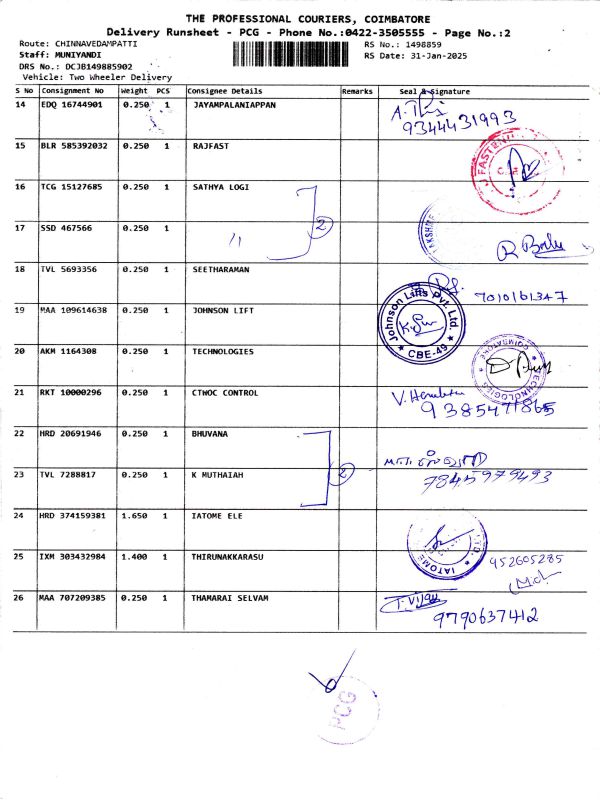 THE PROFESSIONAL COURIERS, COIMBATORE
Delivery Runsheet - PCG - Phone No.:0422-3505555 - Page No.:2
Route: CHINNAVEDAMPATTI RS No.: 1498859
Staff: MUNIYANDI RS Date: 31-Jan-2025
DRS No.: DCJB149885902
Vehicle: Two Wheeler Delivery
S No Consignment No Weight PCS Consignee Details Remarks Seal & Signature
14 EDQ 16744901 0.250 1 JAYAMPALANIAPPAN
9344431993
15 BLR 585392032 0.250 1 RAJFAST
16 TCG 15127685 0.250 1 SATHYA LOGI
2
17 SSD 467566 0.250 1 "
R Babu
18 TVL 5693356 0.250 1 SEETHARAMAN
7010161347
19 MAA 109614638 0.250 1 JOHNSON LIFT
Johnson Lifts Pvt. Ltd.
★ CBE-49 ★
20 AKM 1164308 0.250 1 TECHNOLOGIES
COIMBATORE
TECHNOLOGIES
21 RKT 10000296 0.250 1 CTWOC CONTROL
9385471865
22 HRD 20691946 0.250 1 BHUVANA
2
23 TVL 7288817 0.250 1 K MUTHAIAH
7845979493
24 HRD 374159381 1.650 1 IATOME ELE
IATOME
25 IXM 303432984 1.400 1 THIRUNAKKARASU
952605285
26 MAA 707209385 0.250 1 THAMARAI SELVAM
T. Vijay
9790637412
PCG